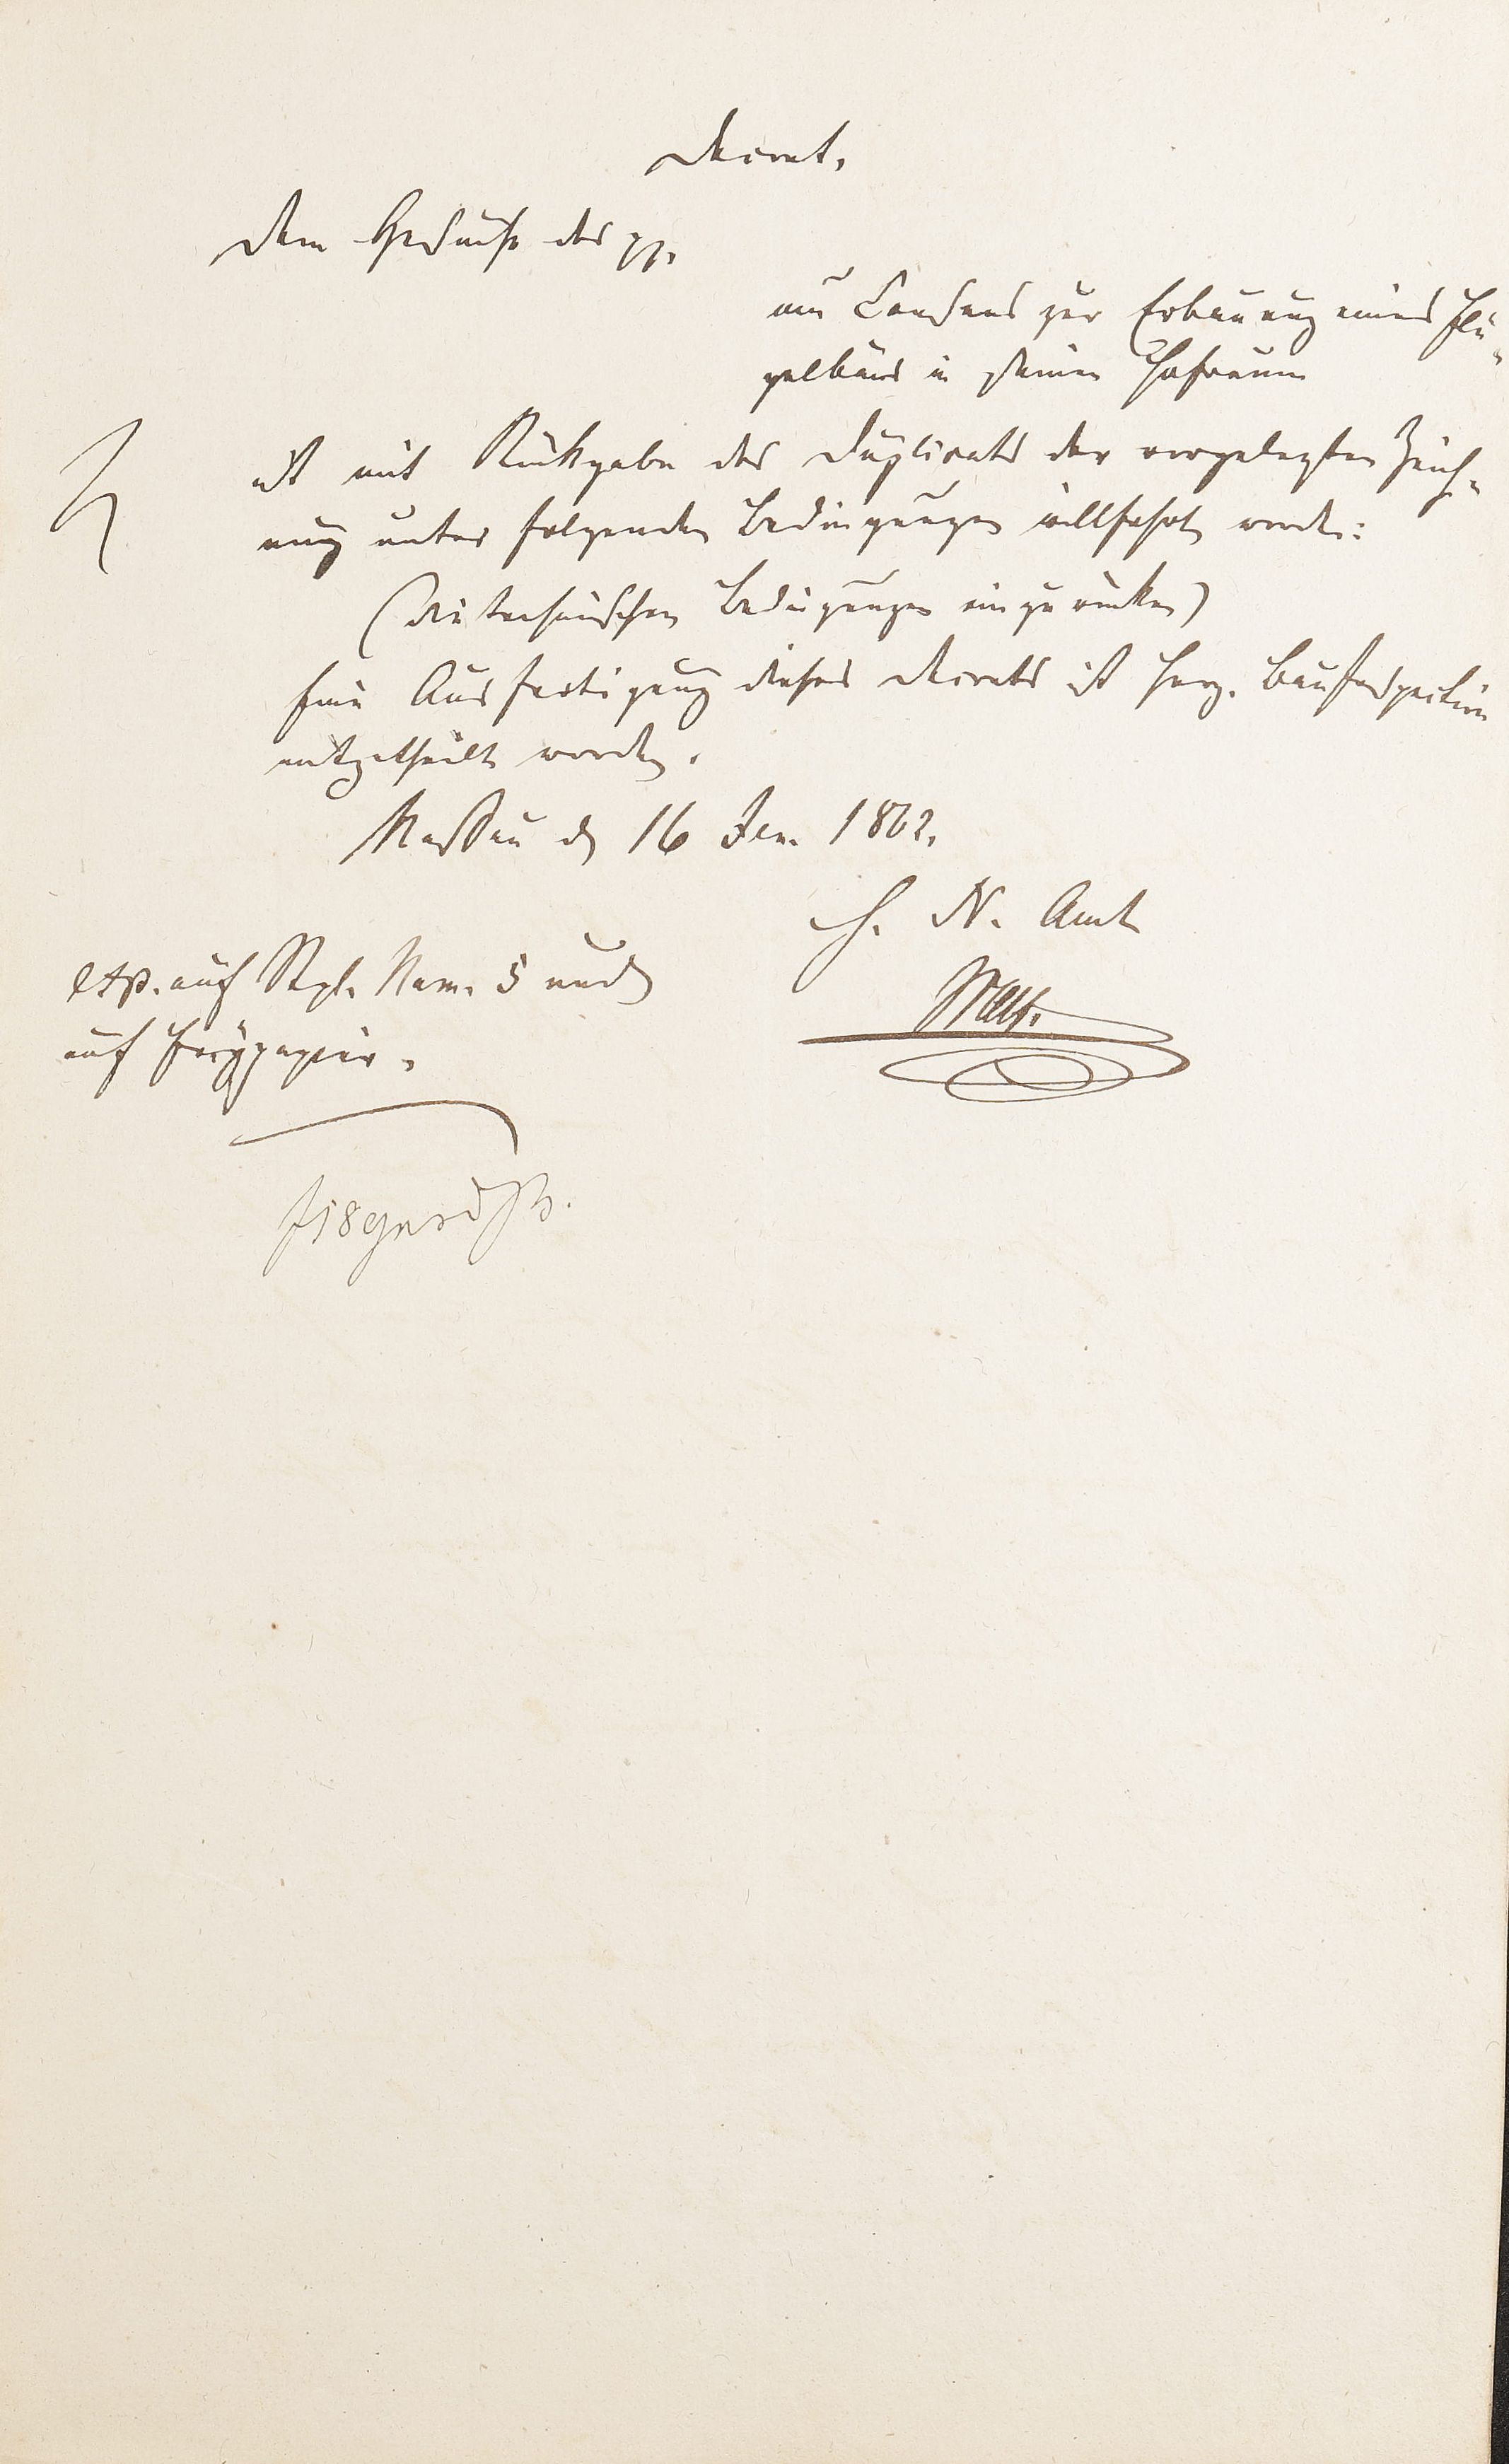 Decret.
Dem Gesuche des pp.
um Consens zur Erbauung eines Flü-
gelbaus in seinem Hofraum
ist mit Rückgabe des Duplicats der vorgelegten Zeich-
nung unter folgenden Bedingungen willfahrt worden:
(die technischen Bedingungen einzurücken)
Eine Ausfertigung dieses Decrets ist Herz. BauInspection
mitgetheilt worden.
Nassau d 16 Jan. 1862.
H. N. Amt
exp. auf Stpl. Num. 5 und
auf Freypapier.